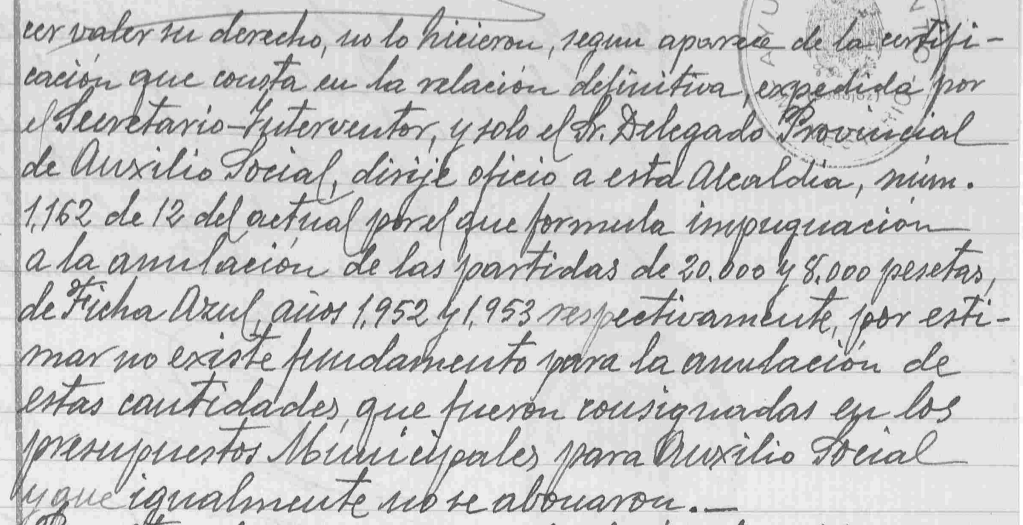 cer valer su derecho, no lo hicieron, segun aparece de la certifi-
cación que consta en la relación definitiva, expedida por
el Secretario-Interventor, y solo el Sr. Delegado Provincial
de Auxilio Social, dirije oficio a esta Alcaldía, núm.
1,162 de 12 del actual por el que formula impugnación
a la anulación de las partidas de 20.000 y 8.000 pesetas,
de Ficha Azul, años 1,952 y 1,953 respectivamente, por esti-
mar no existe fundamento para la anulación de
estas cantidades que fueron consignadas en los
presupuestos Municipales para Auxilio Social
y que igualmente no se abonaron.—